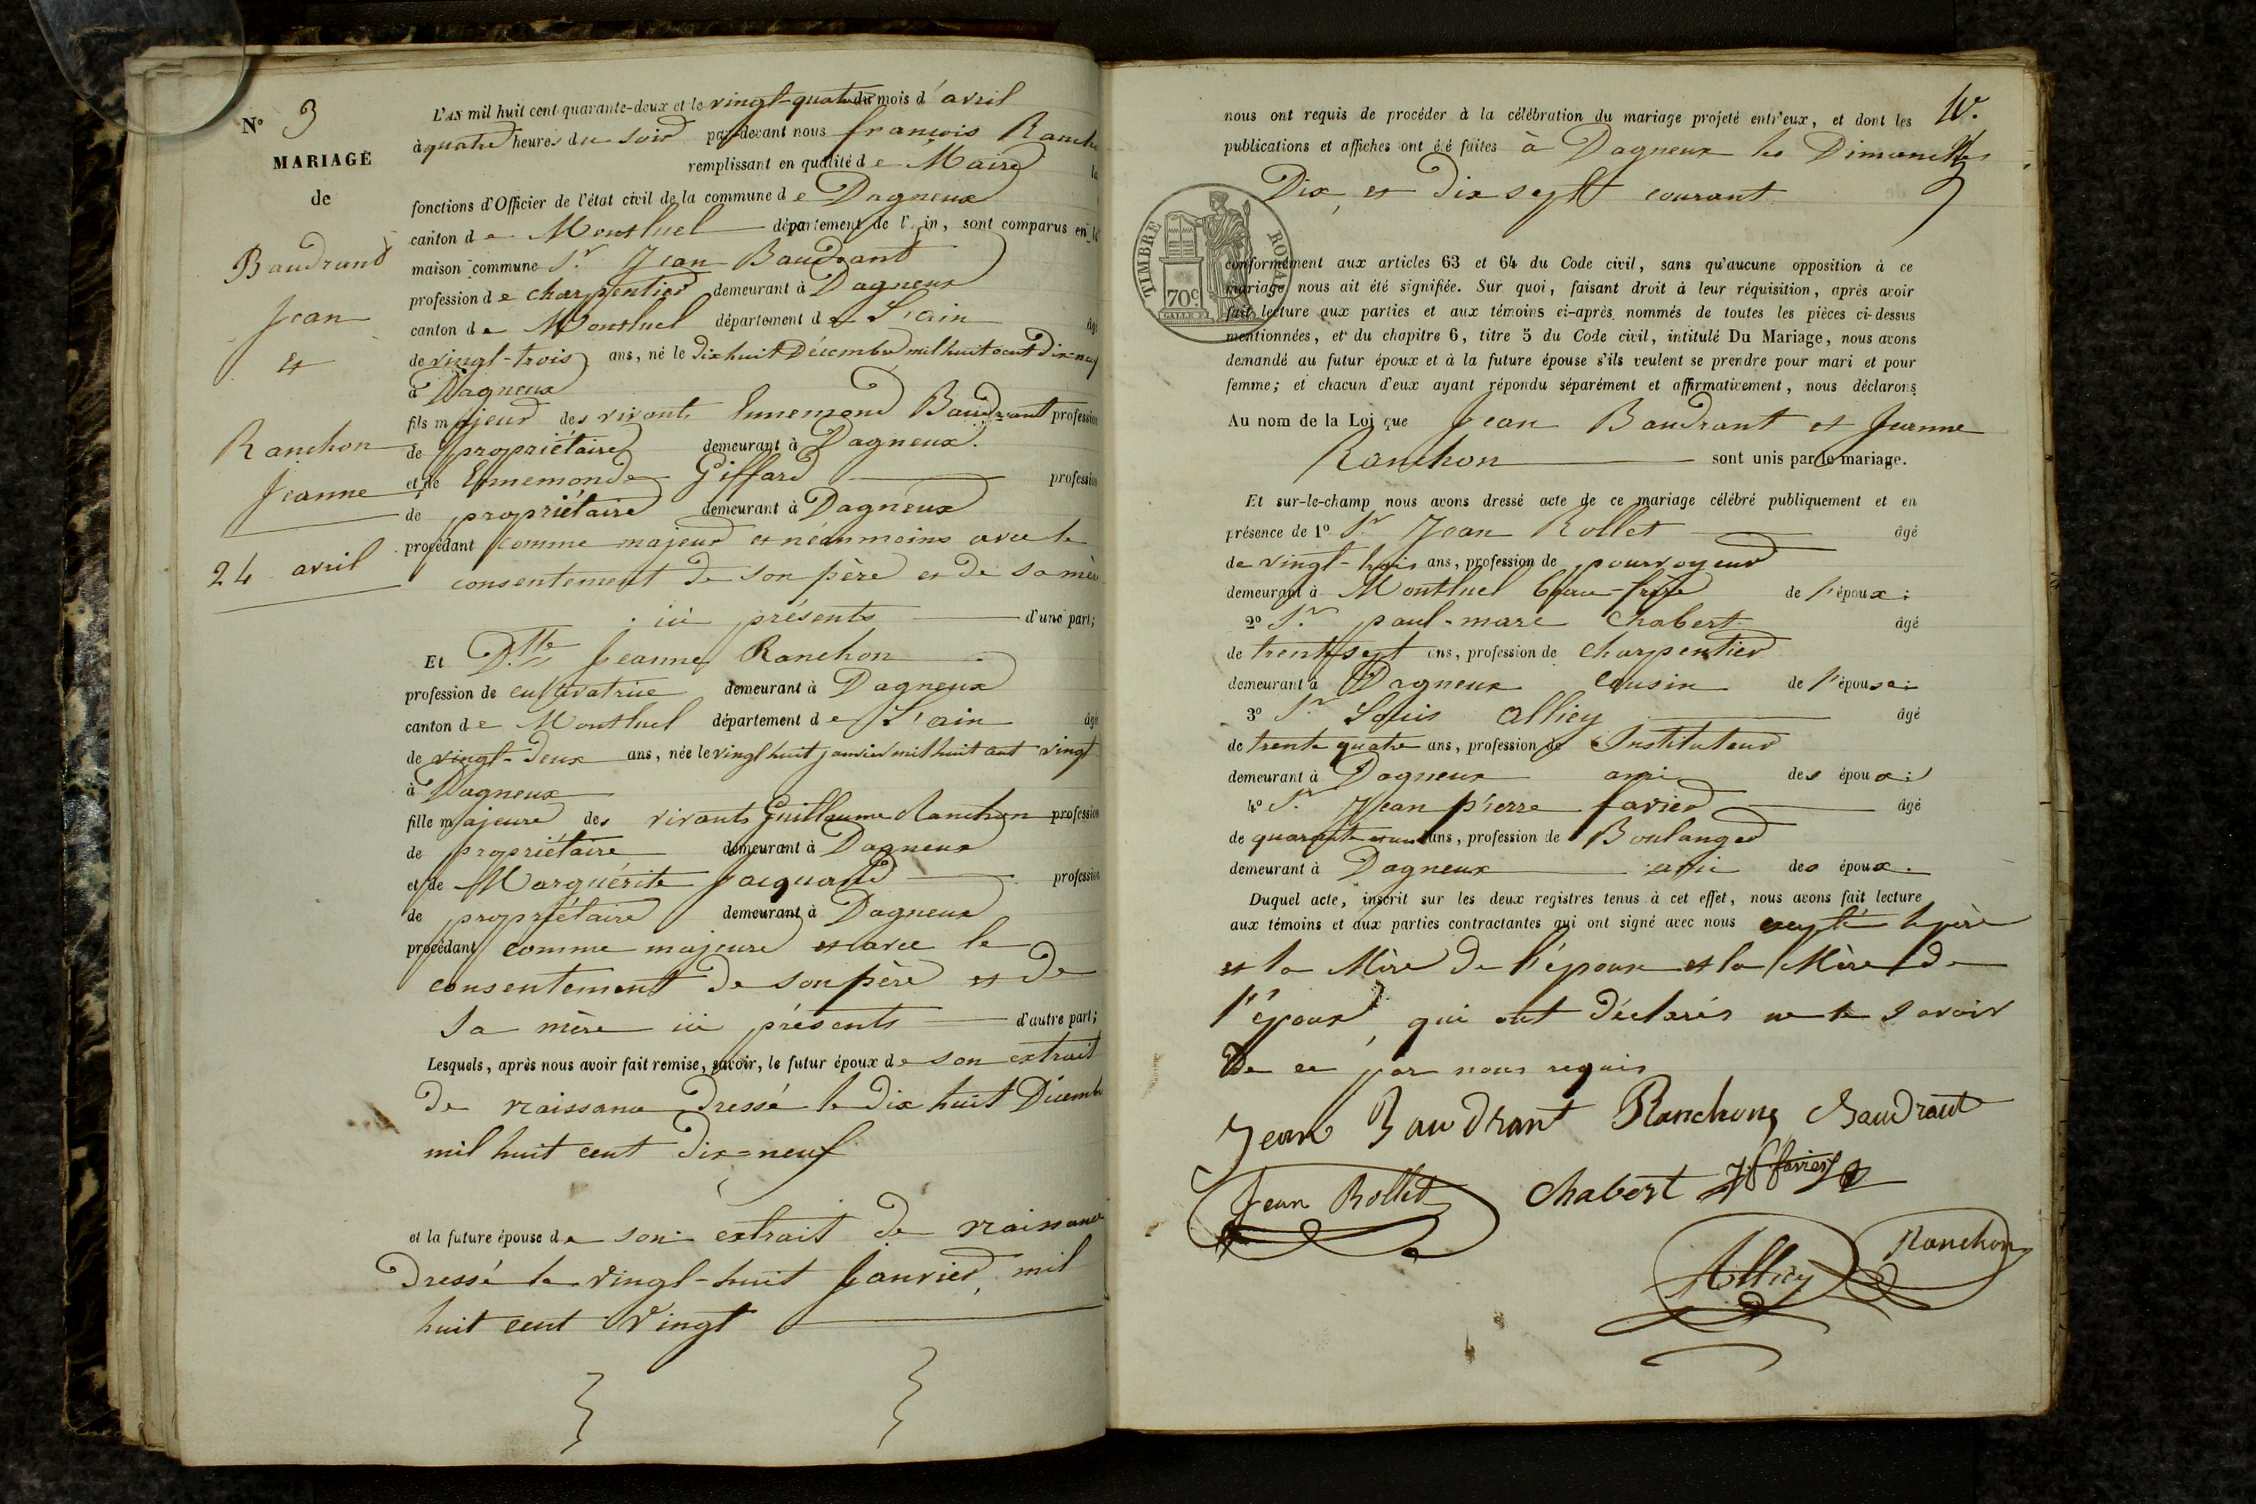 N° 3
MARIAGE
de
Baudrand
Jean
et
Ranchon
Jeanne
24 avril
L'AN mil huit cent quarante-deux et le vingt-quatre du mois d'avril
à quatre heures du soir par-devant nous françois Ranch
remplissant en qualité de Maire
fonctions d'Officier de l'état civil de la commune de Dagneux
canton de Montluel département de l'Ain, sont comparus en la
maison commune Sr Jean Baudrant
profession de charpentier demeurant à Dagneux
canton de Montluel département de L'ain âgé
de vingt-trois ans, né le Dix huit Décembre mil huit cent Dix-neuf
à Dagneux
fils majeur des vivants Ennemond Baudrant profession
de propriétaire demeurant à Dagneux
et de Ennemonde Giffard profession
de propriétaire demeurant à Dagneux
procédant comme majeur et néanmoins avec le
consentement de son père et de sa mère
ici présents d'une part;
Et Dlle Jeanne Ranchon
profession de cultivatrice demeurant à Dagneux
canton de Montluel département de L'ain âgé
de vingt-deux ans, née le vingt huit janvier mil huit cent vingt
à Dagneux
fille majeure des vivants Guillaume Ranchon profession
de propriétaire demeurant à Dagneux
et de Marguérite Jacquand profession
de propriétaire demeurant à Dagneux
procédant comme majeure et avec le
consentement de son père et de
sa mère ici présents d'autre part;
Lesquels, après nous avoir fait remise, savoir, le futur époux de son extrait
de naissance dressé le dix huit Décembre
mil huit cent dix-neuf
et la future épouse de son extrait de naissance
dressé le vingt-huit Janvier, mil
huit cent vingt
nous ont requis de procéder à la célébration du mariage projeté entr'eux, et dont les
publications et affiches ont été faites à Dagneux les Dimanches
Dix, et dix sept courant
TIMBRE ROYAL
70c
conformément aux articles 63 et 64 du Code civil, sans qu'aucune opposition à ce
mariage nous ait été signifiée. Sur quoi, faisant droit à leur réquisition, après avoir
fait lecture aux parties et aux témoins ci-après nommés de toutes les pièces ci-dessus
mentionnées, et du chapitre 6, titre 5 du Code civil, intitulé Du Mariage, nous avons
demandé au futur époux et à la future épouse s'ils veulent se prendre pour mari et pour
femme; et chacun d'eux ayant répondu séparément et affirmativement, nous déclarons
Au nom de la Loi que Jean Baudrant et Jeanne
Ranchon sont unis par le mariage.
Et sur-le-champ nous avons dressé acte de ce mariage célébré publiquement et en
présence de 1° Sr Jean Rollet âgé
de vingt-trois ans, profession de pourvoyeur
demeurant à Montluel beau-frère de l'époux;
2° Sr paul-marc Chabert âgé
de trente sept ans, profession de Charpentier
demeurant à Dagneux Cousin de l'épouse;
3° Sr Louis Alliey âgé
de trente quatre ans, profession de Instituteur
demeurant à Dagneux ami des époux;
4° Sr Jean pierre favier âgé
de quarante et un ans, profession de Boulanger
demeurant à Dagneux ami des époux.
Duquel acte, inscrit sur les deux registres tenus à cet effet, nous avons fait lecture
aux témoins et aux parties contractantes qui ont signé avec nous excepté le père
et la Mère de l'époux et la Mère de
l'épouse qui ont déclarés ne le savoir
De ce par nous requis
Jean Baudrant Ranchon Baudrant
Jean Rollet Chabert favier
Alliey Ranchon